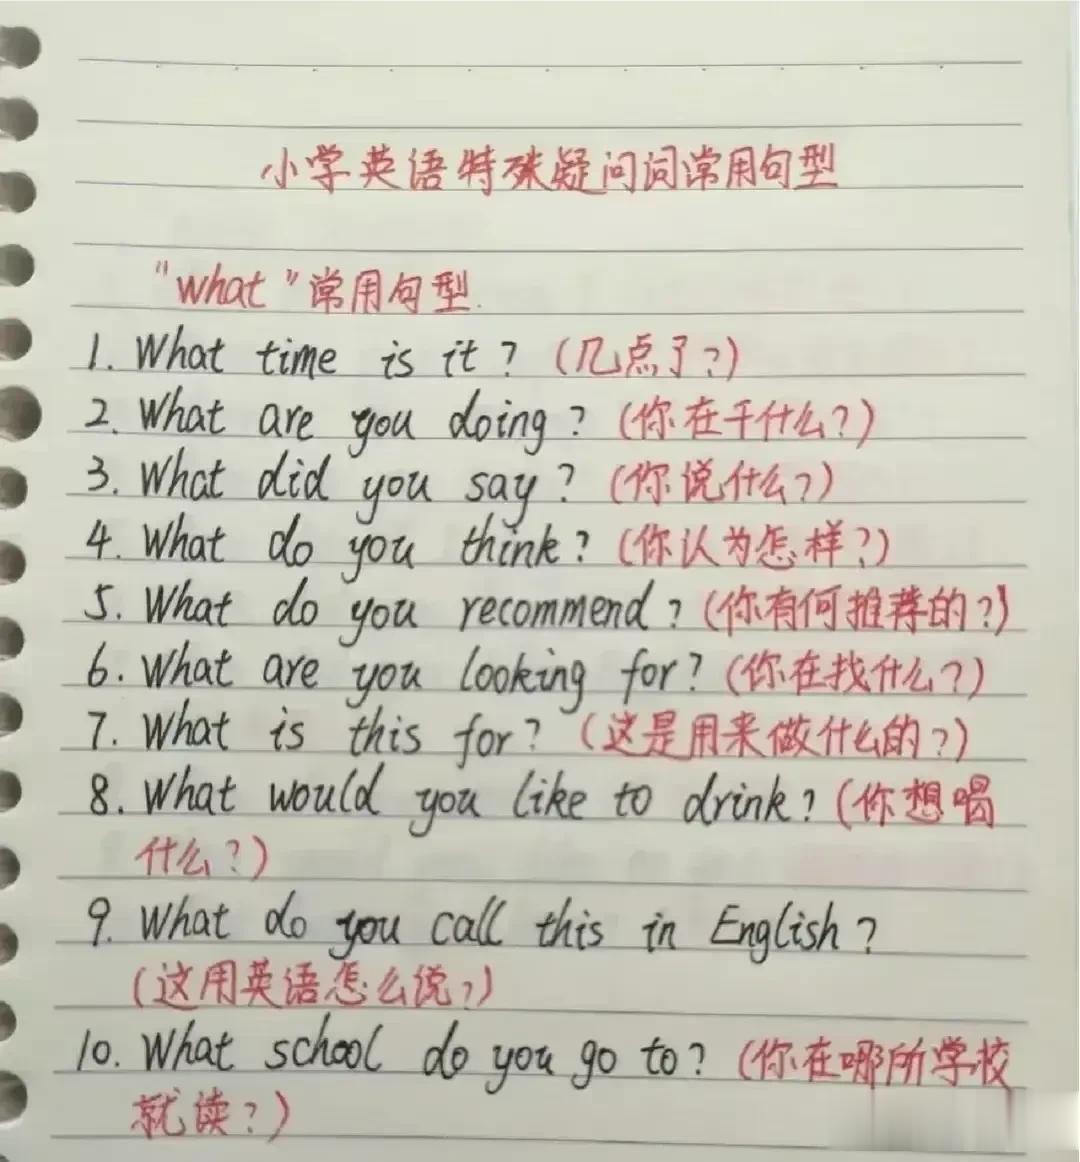 小学英语特殊疑问词常用句型
"what"常用句型.
1. What time is it? (几点了?)
2. What are you doing? (你在干什么?)
3. What did you say? (你说什么?)
4. What do you think? (你认为怎样?)
5. What do you recommend? (你有何推荐的?)
6. What are you looking for? (你在找什么?)
7. What is this for? (这是用来做什么的?)
8. What would you like to drink? (你想喝
什么?)
9. What do you call this in English?
(这用英语怎么说?)
10. What school do you go to? (你在哪所学校
就读?)